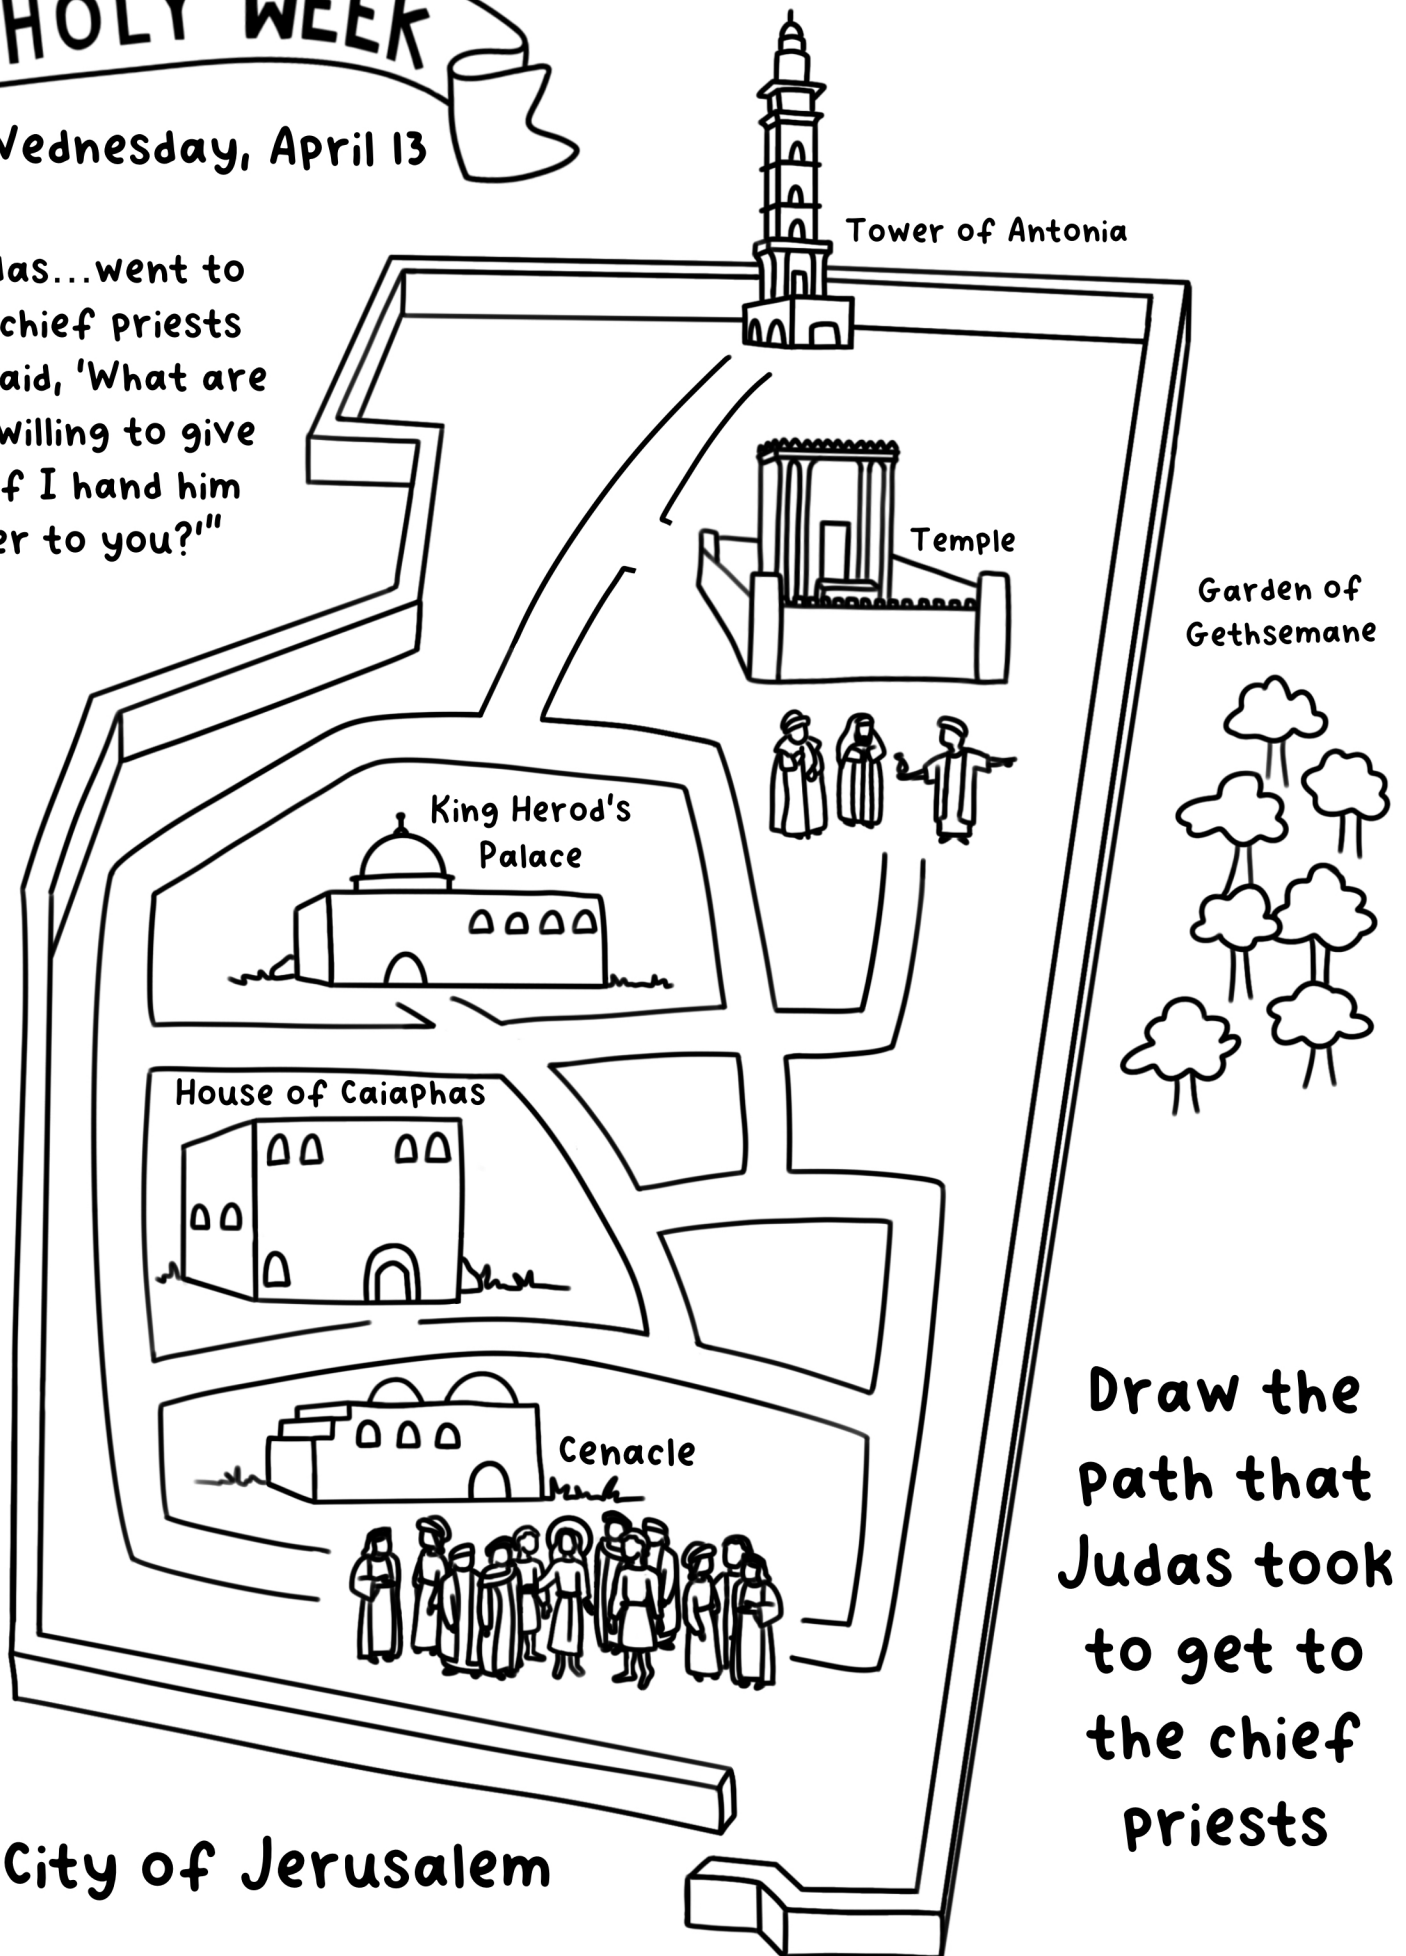 HOLY WEEK
Wednesday, April 13
Tower of Antonia
das...went to
chief priests
said, 'What are
willing to give
if I hand him
er to you?'"
Temple
Garden of
Gethsemane
King Herod's
Palace
House of Caiaphas
Cenacle
Draw the
path that
Judas took
to get to
the chief
priests
City of Jerusalem